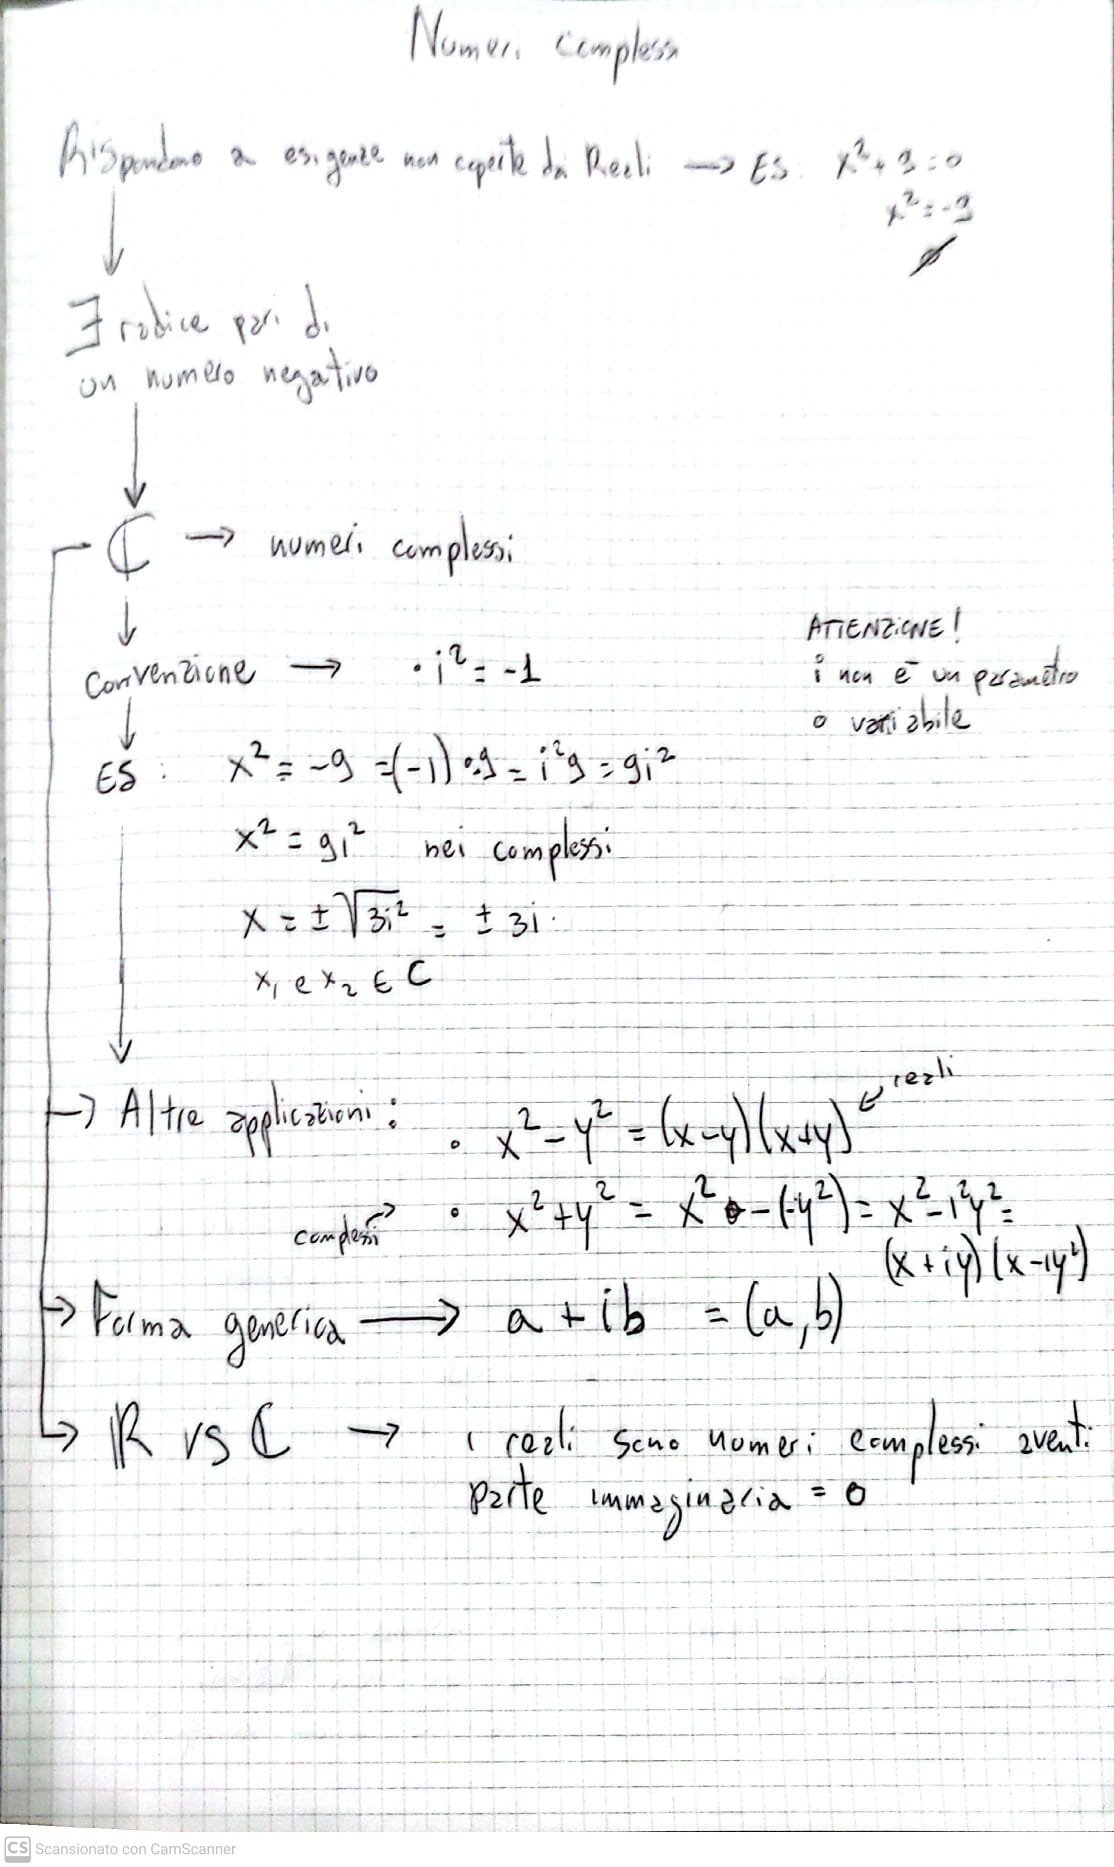 Numeri complessi
Rispondono a esigenze non coperte dai Reali → ES: x² + 9 = 0
x² = -9
∅
∃ radice pari di
un numero negativo
ℂ → numeri complessi
ATTENZIONE!
i non è un parametro
o variabile
Convenzione → • i² = -1
ES: x² = -9 = (-1)•9 = i²9 = 9i²
x² = 9i² nei complessi
x = ± √3i² = ± 3i
x₁ e x₂ ∈ C
→ Altre applicazioni: • x² - y² = (x-y)(x+y) ← reali
complessi → • x² + y² = x² - (-y²) = x² - i²y² =
(x + iy)(x - iy²)
→ Forma generica → a + ib = (a,b)
→ ℝ vs ℂ → i reali sono numeri complessi aventi
parte immaginaria = 0
CS Scansionato con CamScanner